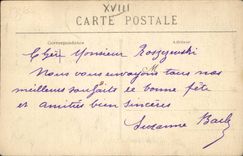 XVIII
CARTE POSTALE
Correspondance Adresse
Cher Monsieur Roszyewski
Nous vous envoyons tous nos
meilleurs souhaits de bonne fête
et amitiés bien sincères
Suzanne